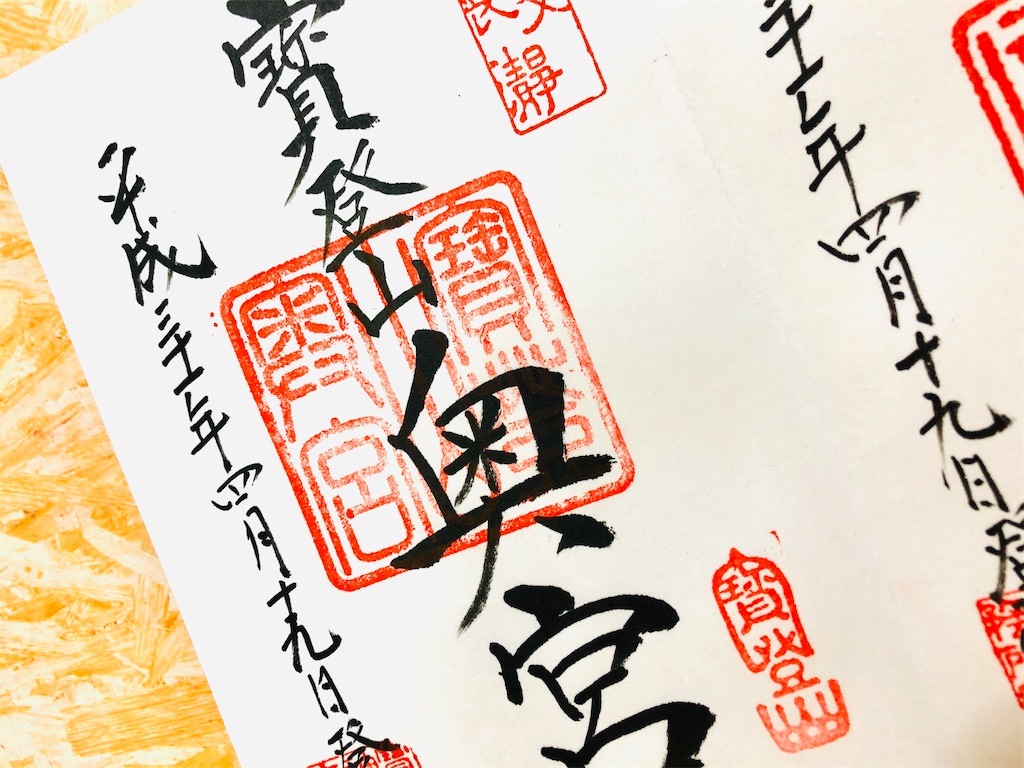 三十一年四月十九日登
長瀞
寶登
山
寶登山奥宮
奥宮
平成三十一年四月十九日登